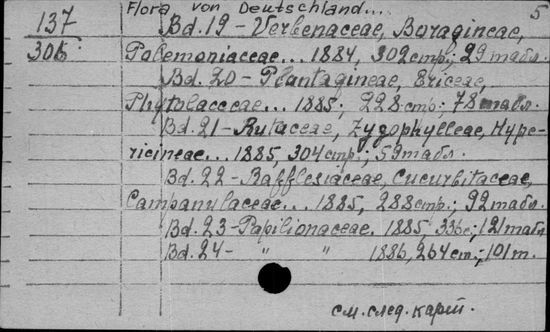 Flora von Deutschland... 5
137 Bd. 19 - Verbenaceae, Boragineae,
306 Polemoniaceae... 1884, 302 стр.; 29 табл.
Bd. 20 - Plantagineae, Ericeae,
Phytolacceae... 1885; 228 стр; 78 табл.
Bd. 21 - Rutaceae, Zygophylleae, Hype-
ricineae... 1885, 304 стр.; 59 табл.
Bd. 22 - Rafflesiaceae, Cucurbitaceae,
Campanulaceae... 1885, 288 стр.; 92 табл.
Bd. 23 - Papilionaceae. 1885, 336 с; 121 табл
Bd. 24 - " " 1886, 264 ст.; 101 т.
см. след. карт.